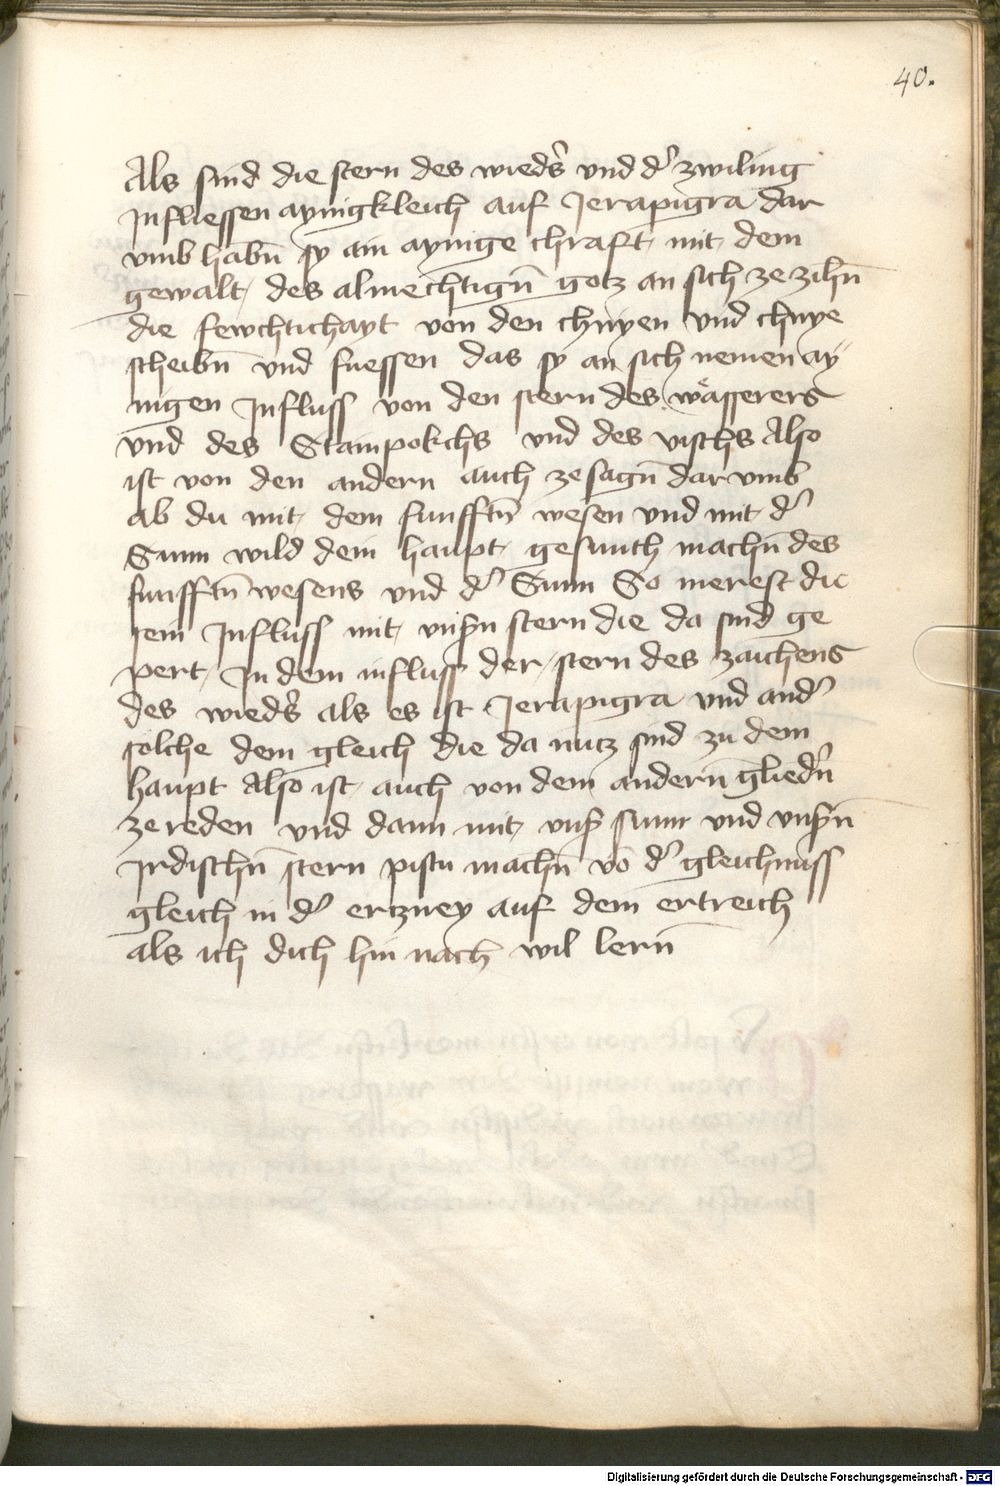 40.
Als sind die stern des wieds̉ vnd d̉ zwiling
Influessen aynigkleich auf Jerapigra dar
vmb habn̄ sy ain aynige chraft mit dem
gewalt des almechtign̄ gotz an sich ze zihn̄
die fewchtichayt von den chnyen vnd chnye
scheibn̄ vnd fuessen das sy an sich nemen ay
nigen Influss von den stern des wässerers
vnd des Stainpokchs vnd des vischs Also
ist von den andern auch ze sagn̄ dar vmb
ab du mit dem funfftn̄ wesen vnd mit d̉
Sunn wild dein haupt gesunth machn̄ des
funfftn̄ wesens vnd d̉ Sunn So merest die
sein Influss mit vnsn̉ stern die da sind ge
pert In dem influss der stern des zaichens
des wieds̉ als es ist Jerapigra vnd and̉
solche dem gleich die da nutz sind zu dem
haupt Also ist auch von dem andern gliedn̉
ze reden vnd dann mit vns̉ sunn vnd vnsn̉
irdischn̄ stern pistu machn̄ vō d̉ gleichnuss
gleich in d̉ ertzney auf dem ertreich
als ich dich hin nach wil lern̄
Digitalisierung gefördert durch die Deutsche Forschungsgemeinschaft - DFG